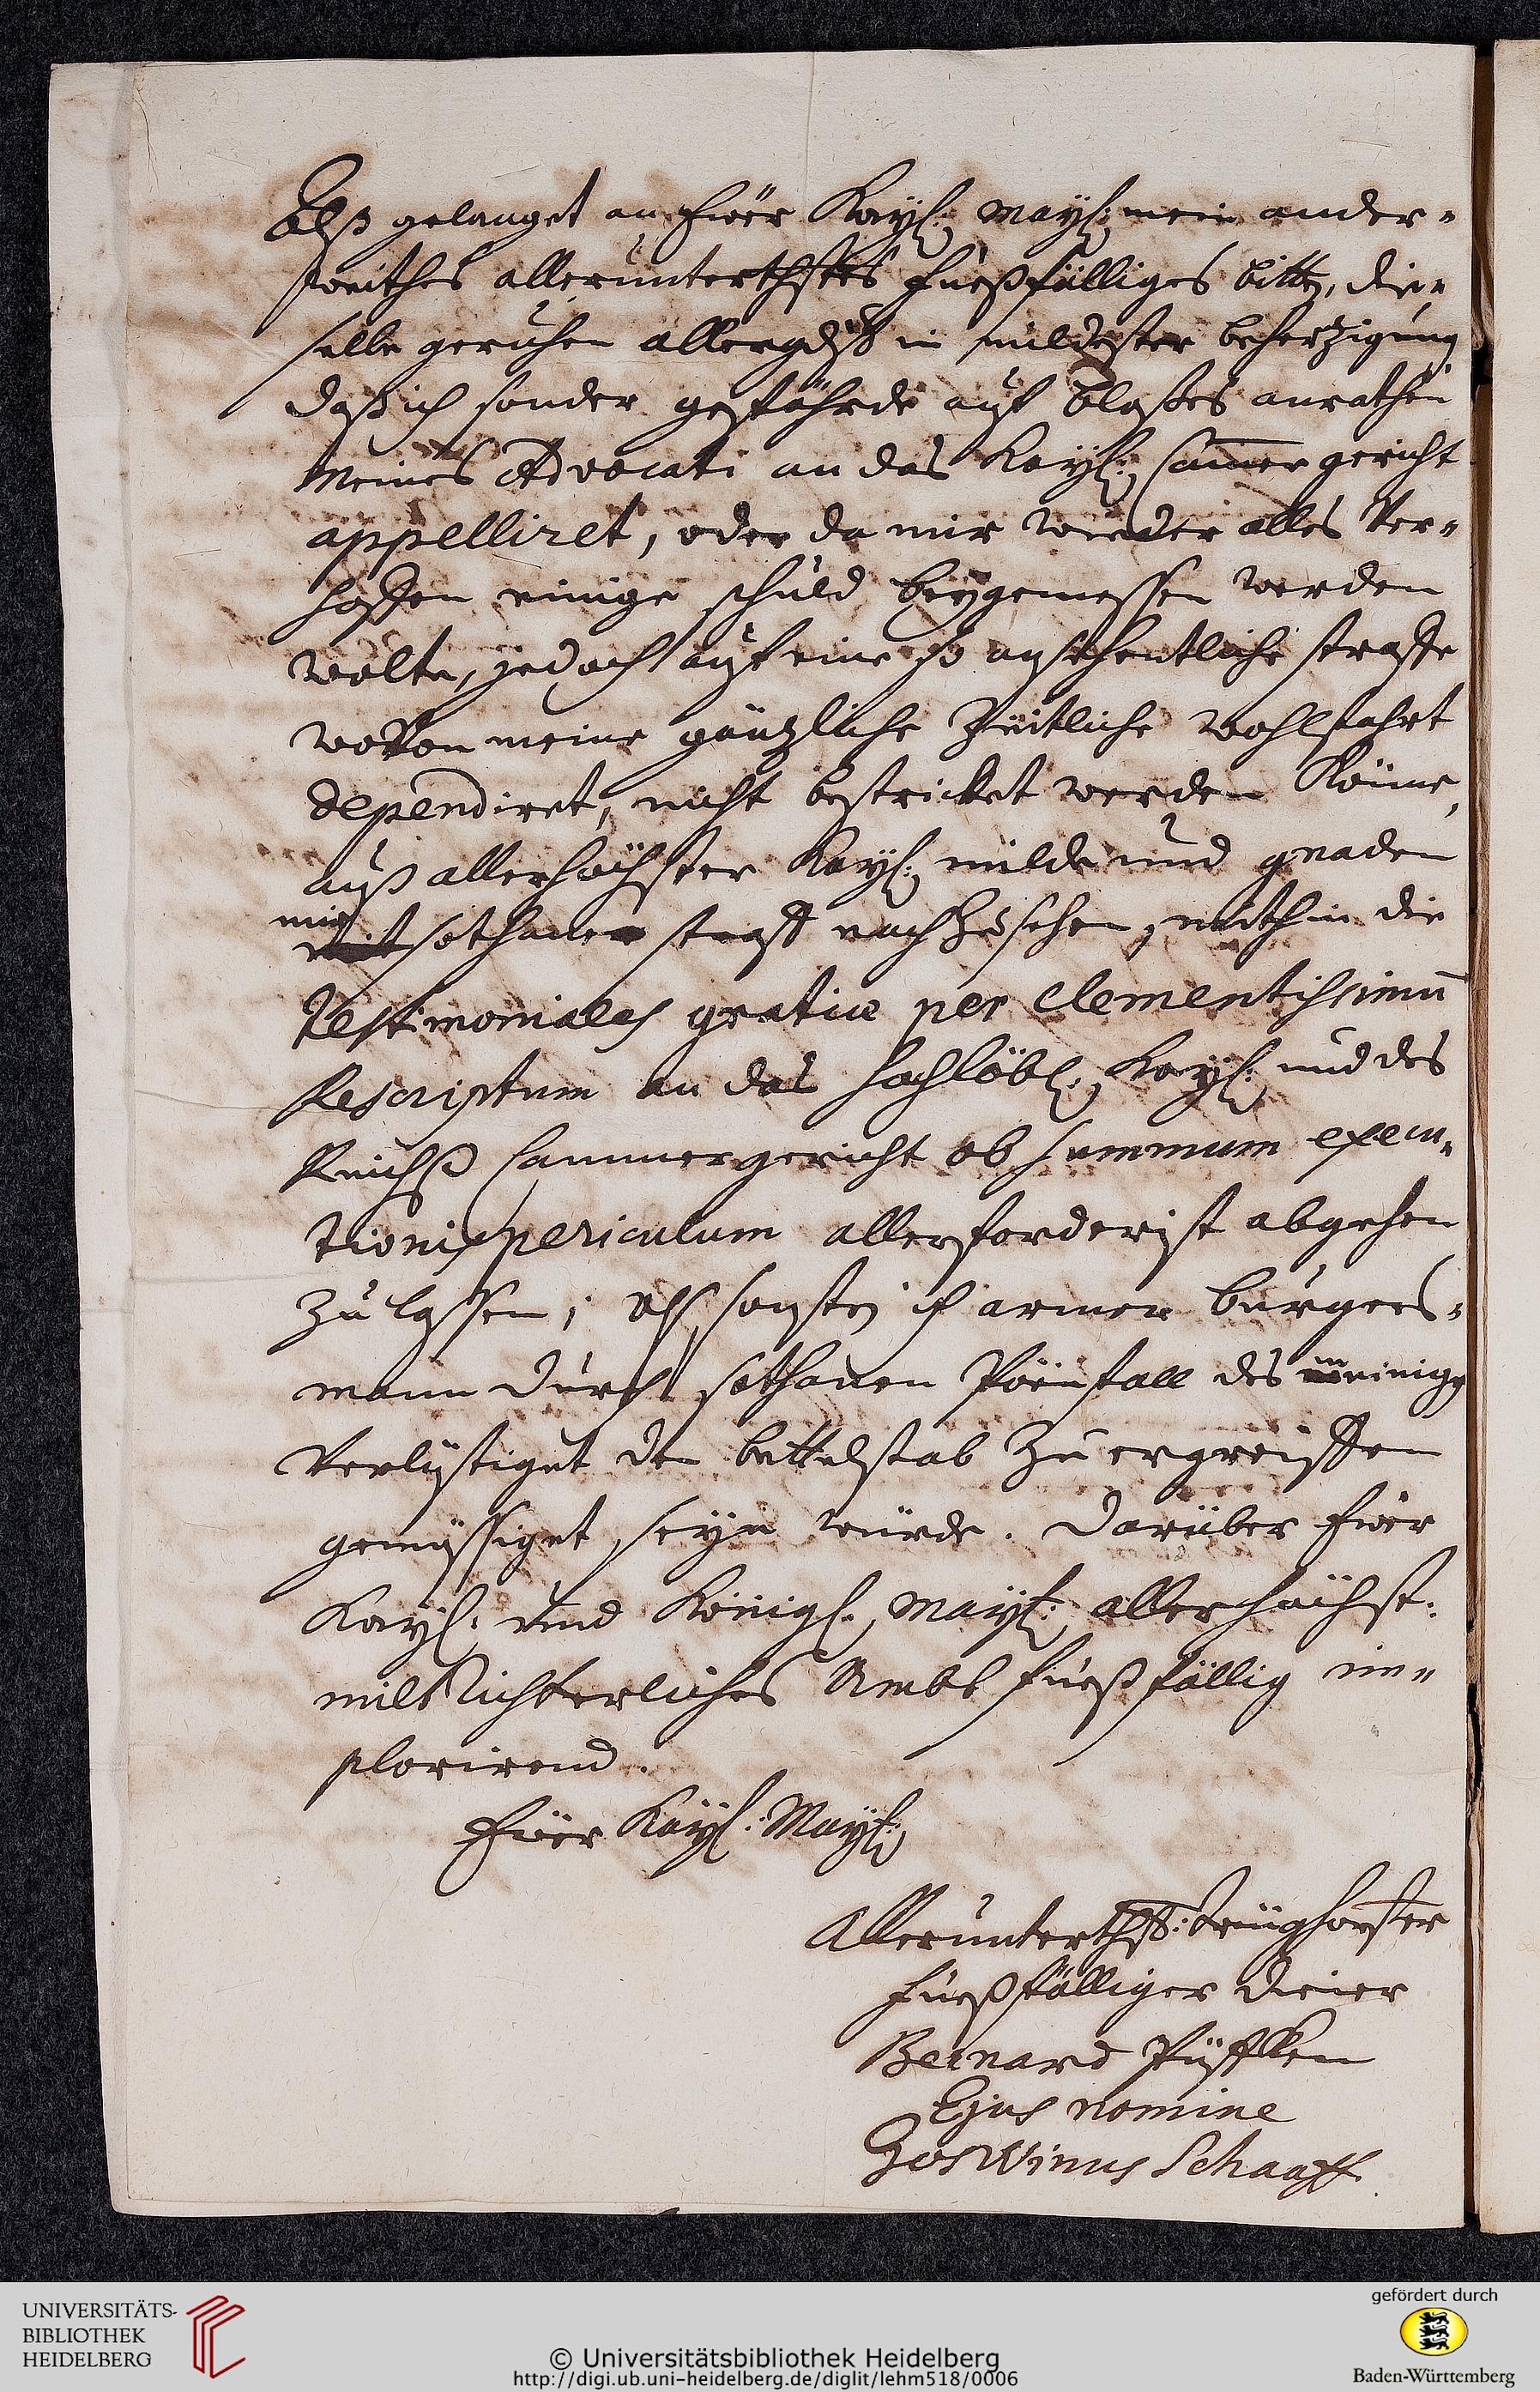 Alß gelanget an Ewer Kayl: Mayl: mein ander-
weithes allerunterthstes fueßfälliges bitten, die-
selbe geruhen allergdst in mildester beherzigung
daß ich sonder gefährde auf bloßes anrathen
Meines Advocati an das Kayl: Cammer gericht
appelliret, oder da mir wieder alles Ver-
hoffen einige schuld beygemessen werden
wolte, jedoch auf eine so ansehentliche straffe
wovon meine gäntzliche Zeitliche wohlfahrt
dependiret, nicht bestricket werden könne,
auß allerhöchster Kayl: milde und gnaden
mir sothane straff nachZusehen, mithin die
Testimoniales gratiae per Clementissimu
Rescriptum an das Hochlöbl: Kayl: und des
Reichß Cammergericht ob summum execu-
tionis periculum allerforderist abgehen
Zu lassen; alß sonsten ich armer burgers-
mann durch sothanen Pöenfall des meinigen
Verlustiget den bettelstab Zu ergreiffen
gemüssiget seyn würde. Darüber Ewer
Kayl: und Königl: Mayt: allerhöchst:
mildRichterliches Ambt fueßfällig im-
plorirend.
Ewer Kayl: Mayt:
Allerunterthst: trewghorster
fueßfälliger diener
Bernard Püffken
Ejus nomine
Goswinus Schaaff
UNIVERSITÄTS-
BIBLIOTHEK
HEIDELBERG
© Universitätsbibliothek Heidelberg
http://digi.ub.uni-heidelberg.de/diglit/lehm518/0006
gefördert durch
Baden-Württemberg